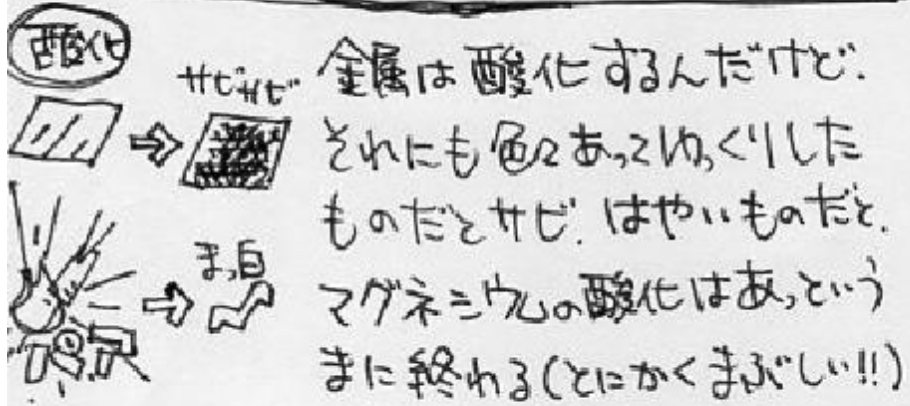 酸化
サビサビ
金属は酸化するんだけど.
それにも色々あってゆっくりした
ものだとサビ. はやいものだと.
まっ白
マグネシウムの酸化はあっという
まに終わる(とにかくまぶしい!!)